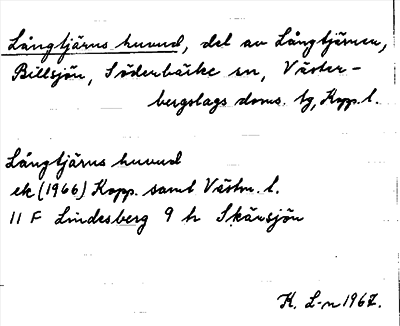 Långtjärns huvud, del av Långtjärnen,
Billsjön, Söderbärke sn, Väster-
bergslags doms. tg, Kopp. l.
Långtjärns huvud
ek (1966) Kopp. samt Västm. l.
11 F Lindesberg 9 h Skärsjön
K. L-n 1967.